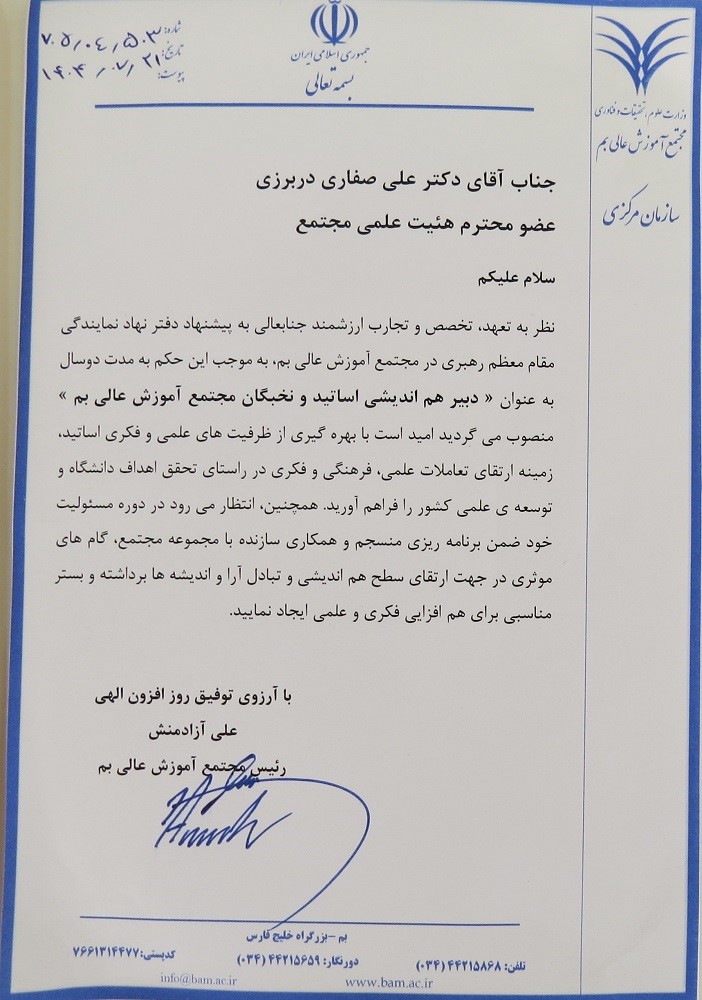 جمهوری اسلامی ایران
بسمه تعالی
شماره: ۷۰۵/۰۴/۵۰۳
تاریخ: ۱۴۰۴/۰۷/۲۱
پیوست:
وزارت علوم، تحقیقات و فناوری
مجتمع آموزش عالی بم
سازمان مرکزی
جناب آقای دکتر علی صفاری دربرزی
عضو محترم هئیت علمی مجتمع
سلام علیکم
نظر به تعهد، تخصص و تجارب ارزشمند جنابعالی به پیشنهاد دفتر نهاد نمایندگی
مقام معظم رهبری در مجتمع آموزش عالی بم، به موجب این حکم به مدت دوسال
به عنوان « دبیر هم اندیشی اساتید و نخبگان مجتمع آموزش عالی بم »
منصوب می گردید امید است با بهره گیری از ظرفیت های علمی و فکری اساتید،
زمینه ارتقای تعاملات علمی، فرهنگی و فکری در راستای تحقق اهداف دانشگاه و
توسعه ی علمی کشور را فراهم آورید. همچنین، انتظار می رود در دوره مسئولیت
خود ضمن برنامه ریزی منسجم و همکاری سازنده با مجموعه مجتمع، گام های
موثری در جهت ارتقای سطح هم اندیشی و تبادل آرا و اندیشه ها برداشته و بستر
مناسبی برای هم افزایی فکری و علمی ایجاد نمایید.
با آرزوی توفیق روز افزون الهی
علی آزادمنش
رئیس مجتمع آموزش عالی بم
بم -بزرگراه خلیج فارس
تلفن: ۴۴۲۱۵۸۶۸ (۰۳۴) دورنگار: ۴۴۲۱۵۶۵۹ (۰۳۴) کدپستی: ۷۶۶۱۳۱۴۴۷۷
www.bam.ac.ir info@bam.ac.ir